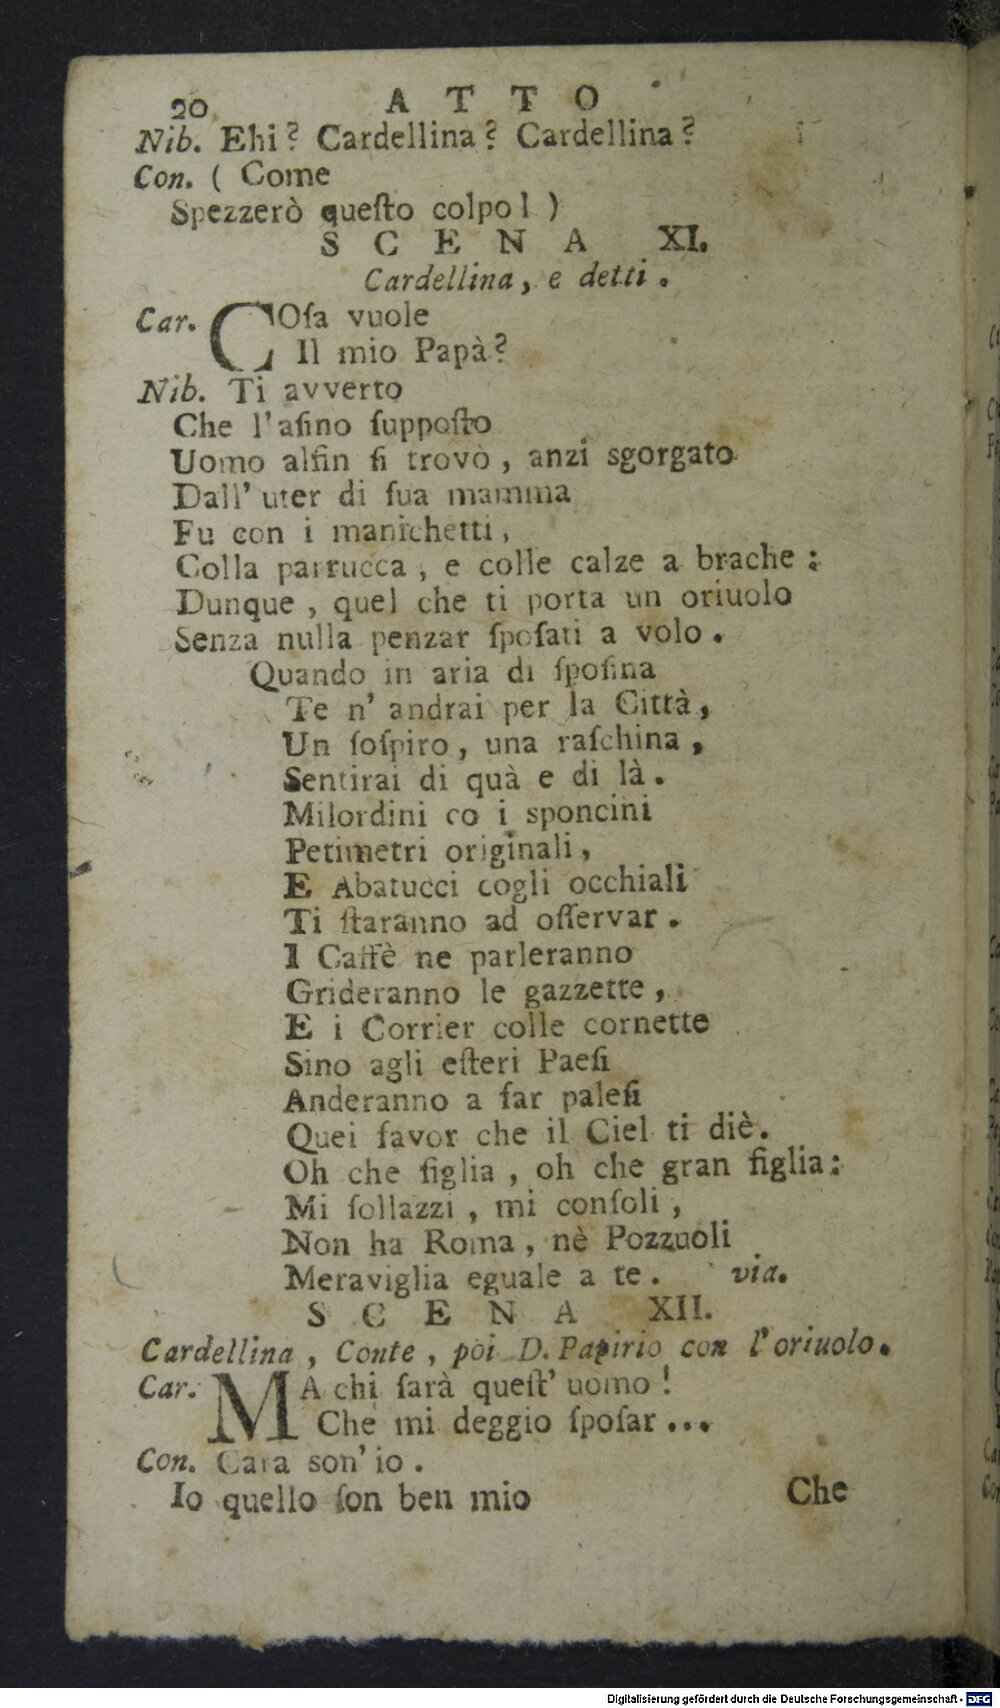 20 ATTO
Nib. Ehi? Cardellina? Cardellina?
Con. ( Come
Spezzerò queſto colpo! )
SCENA XI.
Cardellina, e detti.
Car. COſa vuole
Il mio Papà?
Nib. Ti avverto
Che l'aſino ſuppoſto
Uomo alfin ſi trovò, anzi sgorgato
Dall' uter di ſua mamma
Fu con i manichetti,
Colla parrucca, e colle calze a brache:
Dunque, quel che ti porta un oriuolo
Senza nulla penzar ſpoſati a volo.
Quando in aria di ſpoſina
Te n' andrai per la Città,
Un ſoſpiro, una raſchina,
Sentirai di quà e di là.
Milordini co i sponcini
Petimetri originali,
E Abatucci cogli occhiali
Ti ſtaranno ad oſſervar.
I Caffè ne parleranno
Grideranno le gazzette,
E i Corrier colle cornette
Sino agli eſteri Paeſi
Anderanno a far paleſi
Quei favor che il Ciel ti diè.
Oh che figlia, oh che gran figlia:
Mi ſollazzi, mi conſoli,
Non ha Roma, nè Pozzuoli
Meraviglia eguale a te. via.
SCENA XII.
Cardellina, Conte, poi D. Papirio con l'oriuolo.
Car. MA chi ſarà queſt' uomo!
Che mi deggio ſpoſar...
Con. Cara son' io.
Io quello ſon ben mio
Che
Digitalisierung gefördert durch die Deutsche Forschungsgemeinschaft - DFG